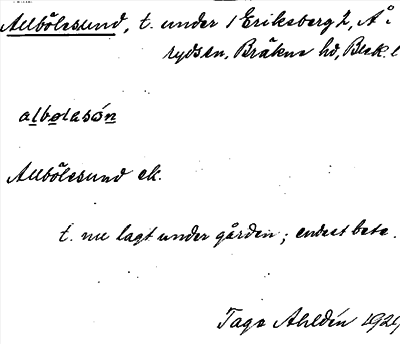 Allbölesund, t. under 1 Eriksberg 2, Å-
rydsn, Bräkne hd, Blek. l
albolasón
Allbölesund ek.
t. nu lagt under gården; endast bete.
Tage Ahldén 1929